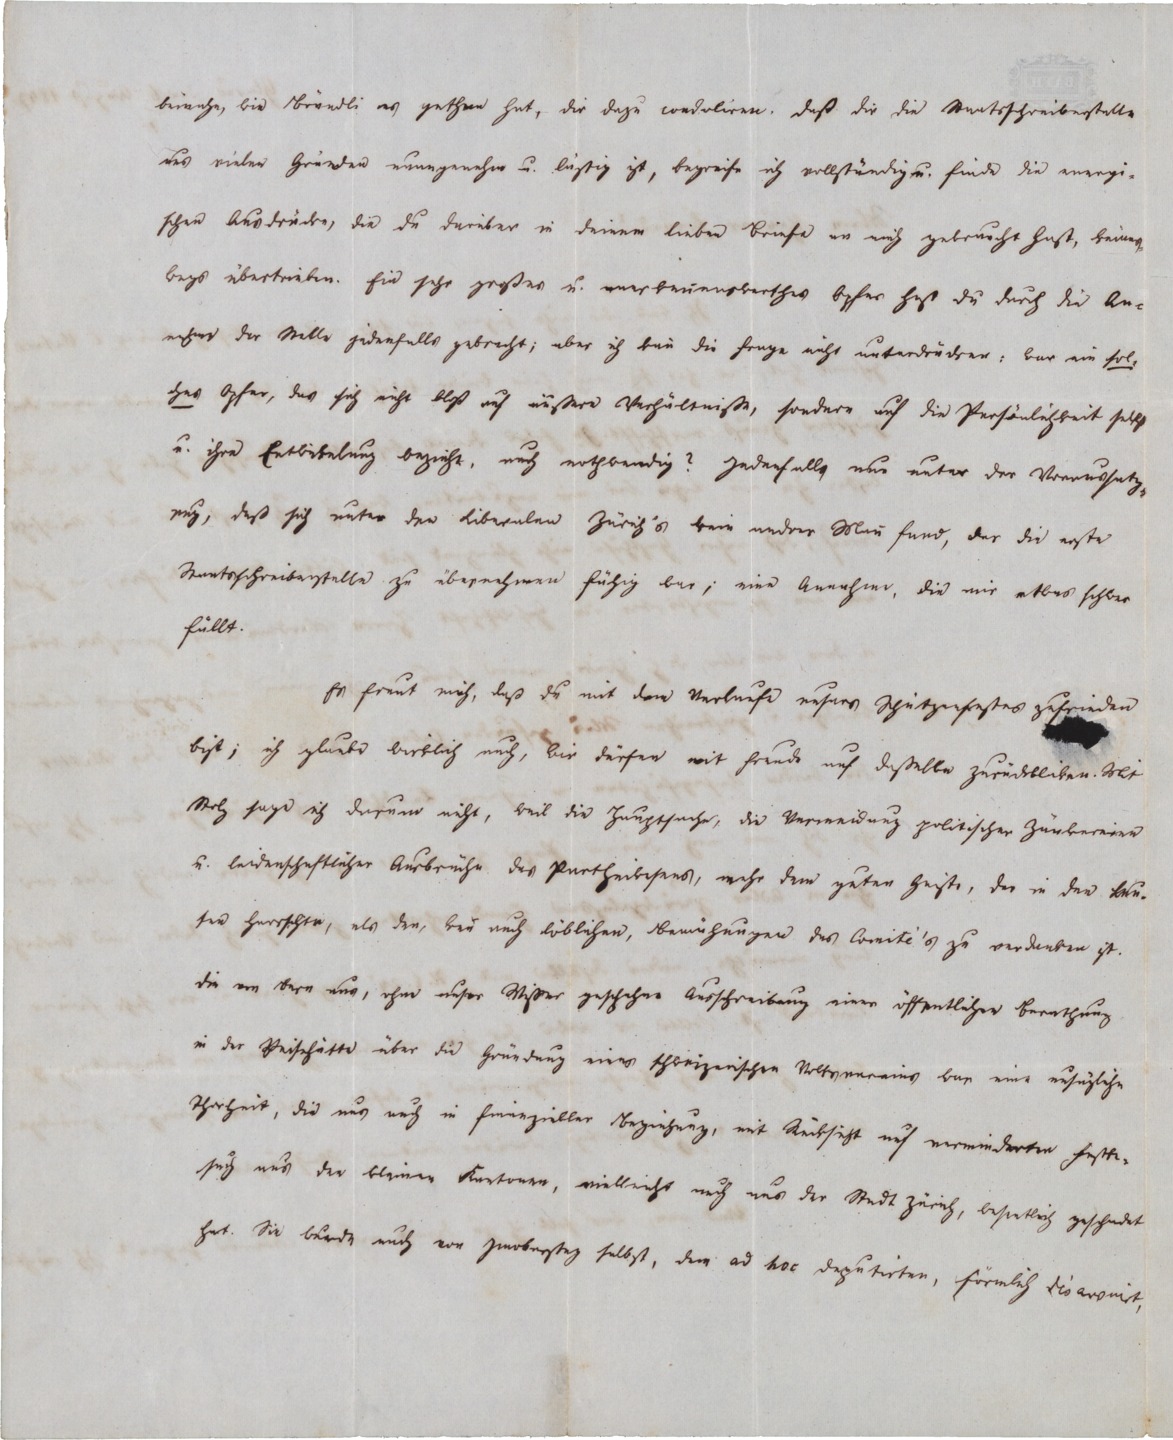 beinahe, wie Brändli es gethan hat, dir dazu condoliren. Daß dir die Staatsschreiberstelle
aus vielen Gründen unangenehm u. lästig ist, begreife ich vollständig u. finde die energi-
schen Ausdrücke, die du darüber in deinem lieben Briefe an mich gebraucht hast, keines-
wegs übertrieben. Ein sehr großes u. anerkennenswerthes Opfer hast du durch die An-
nahme der Stelle jedenfalls gebracht; aber ich kann die Frage nicht unterdrücken: war ein sol-
ches Opfer, das sich nicht bloß auf äußere Verhältnisse, sondern auf die Persönlichkeit selbst
u. ihre Entwikelung bezieht, auch nothwendig? Jedenfalls nur unter der Voraussetz-
ung, daß sich unter den Liberalen Zürich's kein andrer Mann fand, der die erste
Staatsschreiberstelle zu übernehmen fähig war; eine Annahme, die mir etwas schwer
fällt.
Es freut mich, daß du mit dem Verlaufe unsers Schützenfestes zufrieden
bist; ich glaube wirklich auch, wir dürfen mit Freude auf dasselbe zurückbliken. Mit
Stolz sage ich darum nicht, weil die Hauptsache, die Vermeidung politischer Zänkereien
u. leidenschaftlicher Ausbrüche des Partheiwesens, mehr dem guten Geiste, der in den Leu-
ten herrschte, als den, wenn auch löblichen, Bemühungen des Comité's zu verdanken ist.
Die von Bern aus, ohne unser Wissen geschehene Ausschreibung einer öffentlichen Berathung
in der Speisehütte über die Gründung eines schweizerischen Volksvereins war eine unsägliche
Thorheit, die uns auch in finanzieller Beziehung, mit Rücksicht auf verminderten Festbe-
such aus den kleinen Kantonen, vielleicht auch aus der Stadt Zürich, wesentlich geschadet
hat. Sie wurde auch von Imobersteg selbst, dem ad hoc deputirten, förmlich désavouirt,